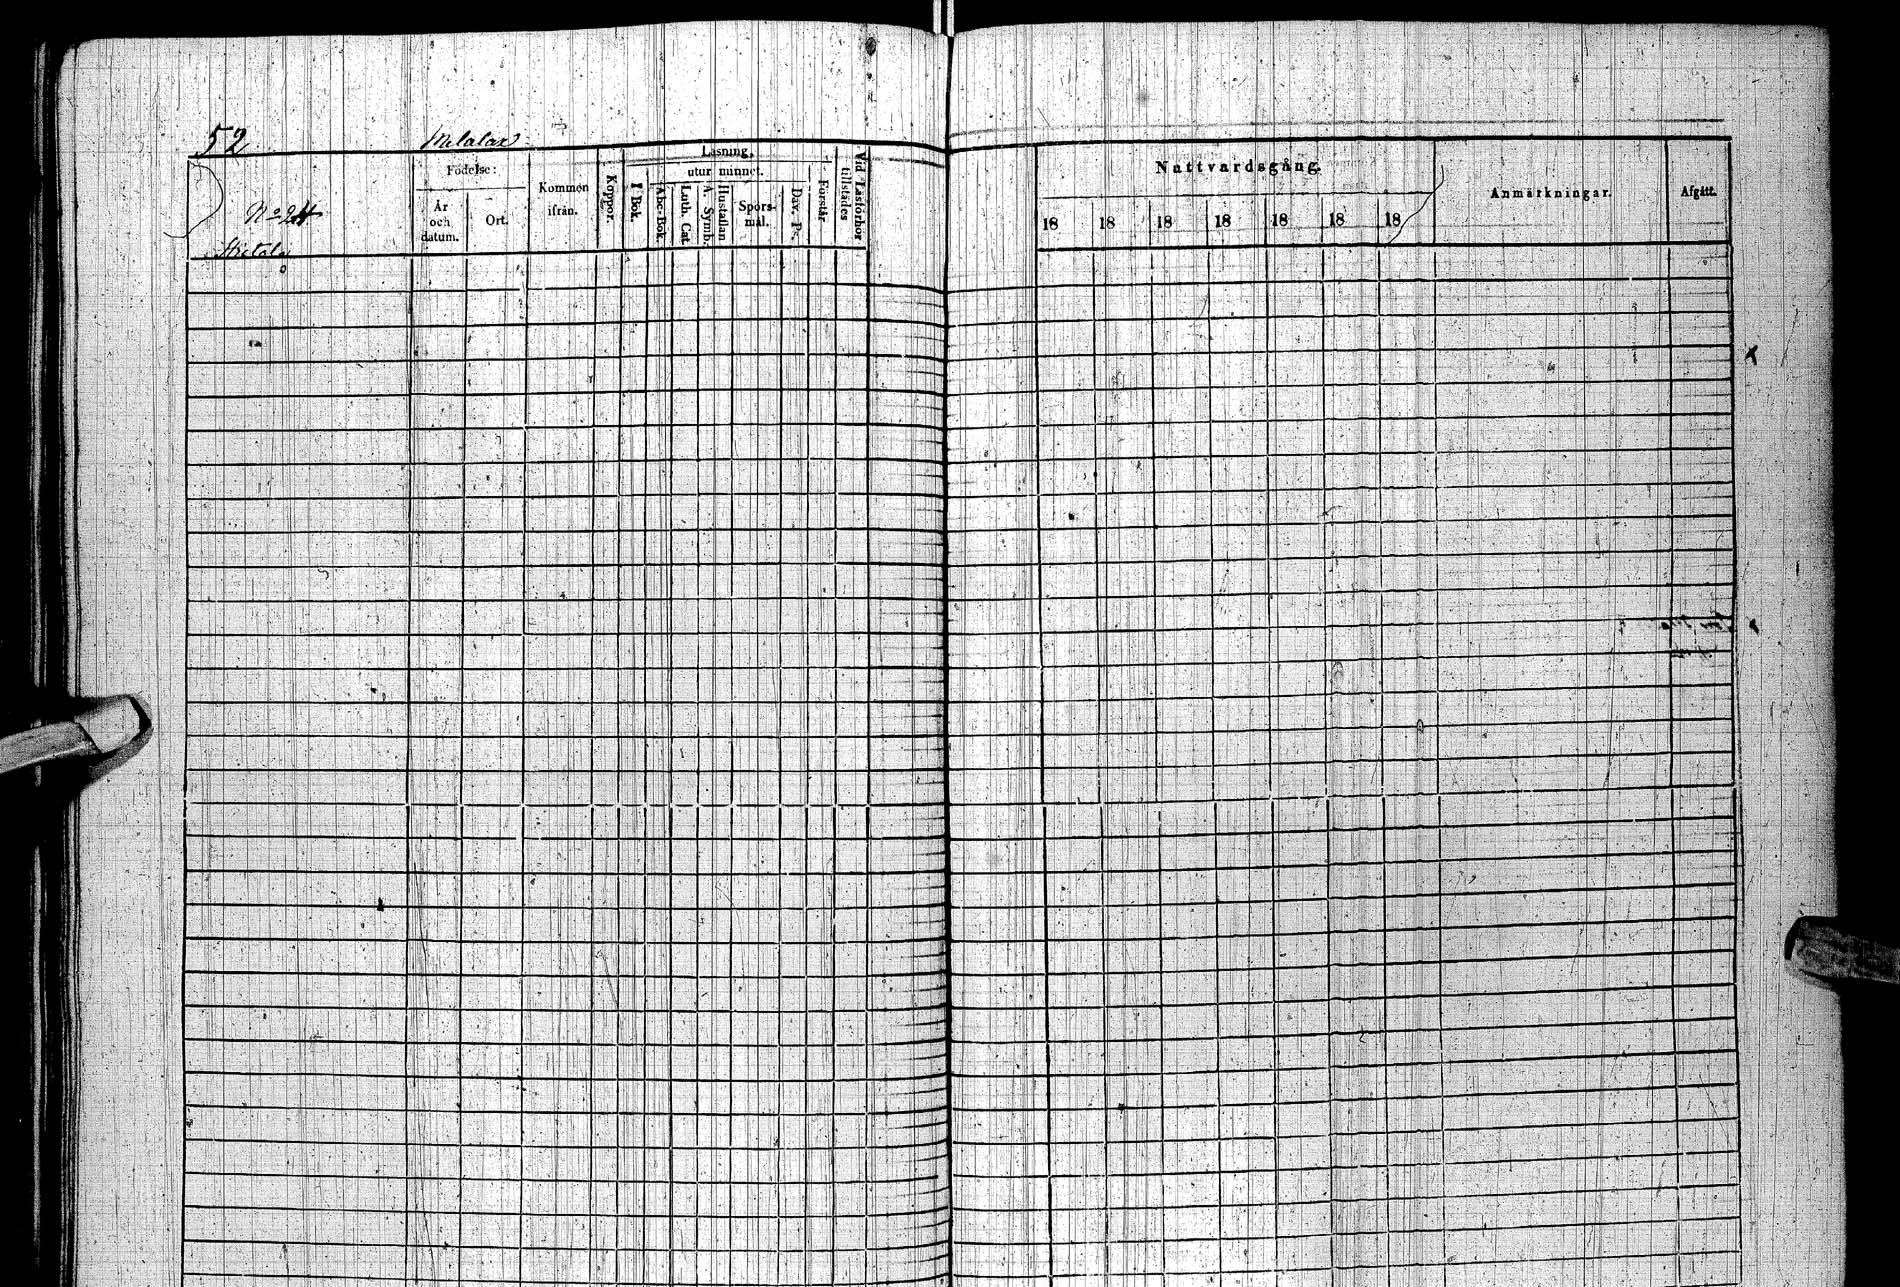 52
Melalax
Nº 24
Hietala
Födelse:
År och datum.
Ort.
Kommen ifrån.
Koppor.
Läsning,
I Bok.
utur minnet.
Abc-Bok.
Luth. Cat.
A. Symb.
Hustaflan
Spörs-mål.
Dav. Ps.
Förstår
Vid Läsförhör tillstädes
Nattvardsgång.
18 18 18 18 18 18 18
Anmärkningar.
Afgått.